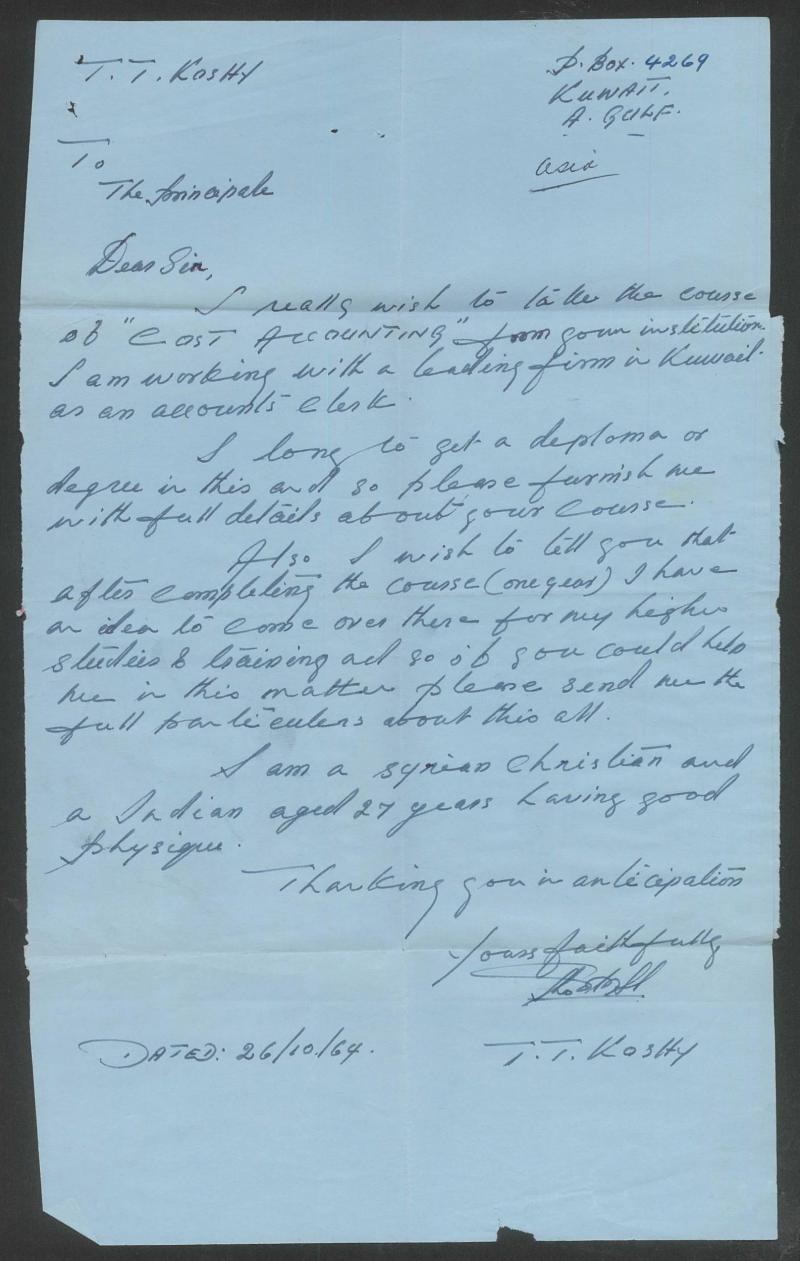 T. T. KOSHY
P. Box. 4269
KUWAIT.
A. GULF.
asia
To
The principale
Dear Sir,
I really wish to take the course
of "COST ACCOUNTING" from your institution.
I am working with a leading firm in Kuwait.
as an accounts clerk.
I long to get a deploma or
degree in this and so please furnish me
with full details about your course.
Also I wish to tell you that
after completing the course (one year) I have
an idea to come over there for my higher
studies & training ad so if you could help
me in this matter please send me the
full particulers about this all.
I am a syrian christian and
a Indian aged 27 years having good
physique.
Thanking you in anticipation
Yours faithfully
T. T. KOSHY
DATED: 26/10/64.